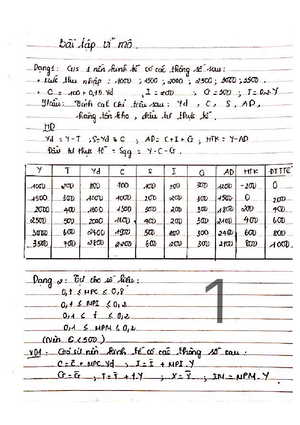 Bài tập vĩ mô.
Dạng 1: Cho 1 nền kinh tế có các thông số sau:
- Mức thu nhập: 1000; 1500; 2000; 2500; 3000; 3500.
- C = 100 + 0,75.Yd ; I = 100 ; G = 300 ; T = 0,2.Y
Yêu cầu: Tính các chỉ tiêu sau: Yd, C, S, AD,
hàng tồn kho, đầu tư thực tế.
HD
Yd = Y - T ; S = Yd - C ; AD = C + I + G ; HTK = Y - AD
Đầu tư thực tế = Y - C - G.
Y T Yd C S I G AD HTK ĐTTTế
1000 200 800 700 100 100 300 -200 0
1500 300 1200 1000 200 300 1500 0 200
2000 400 1600 1300 300 300 1800 200 400
2500 500 2000 400 300 2100 400 600
3000 600 2400 1900 500 300 2400 600 800
3500 2800 2200 600 300 800 1000
Dạng 2: Tự cho số liệu:
0,1 ≤ MPC ≤ 0,8
0,1 ≤ MPI ≤ 0,2
0,1 ≤ t ≤ 0,2
0,1 ≤ MPM ≤ 0,2
1
VD1: Giả sử nền kinh tế có các thông số sau:
C = C̅ + MPC.Yd ; I = I̅ + MPI.Y
G = G̅ ; T = T̅ + t.Y ; X = X̅ ; IM = MPM.Y